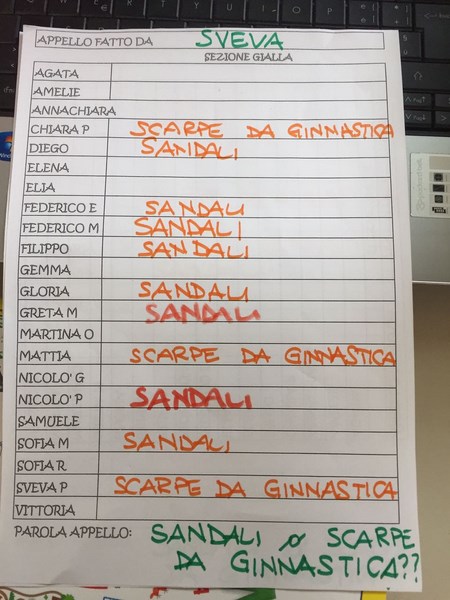 APPELLO FATTO DA SVEVA
SEZIONE GIALLA
AGATA
AMELIE
ANNACHIARA
CHIARA P SCARPE DA GINNASTICA
DIEGO SANDALI
ELENA
ELIA
FEDERICO E SANDALI
FEDERICO M SANDALI
FILIPPO SANDALI
GEMMA
GLORIA SANDALI
GRETA M SANDALI
MARTINA O
MATTIA SCARPE DA GINNASTICA
NICOLO' G
NICOLO' P SANDALI
SAMUELE
SOFIA M SANDALI
SOFIA R
SVEVA P SCARPE DA GINNASTICA
VITTORIA
PAROLA APPELLO: SANDALI O SCARPE
DA GINNASTICA??